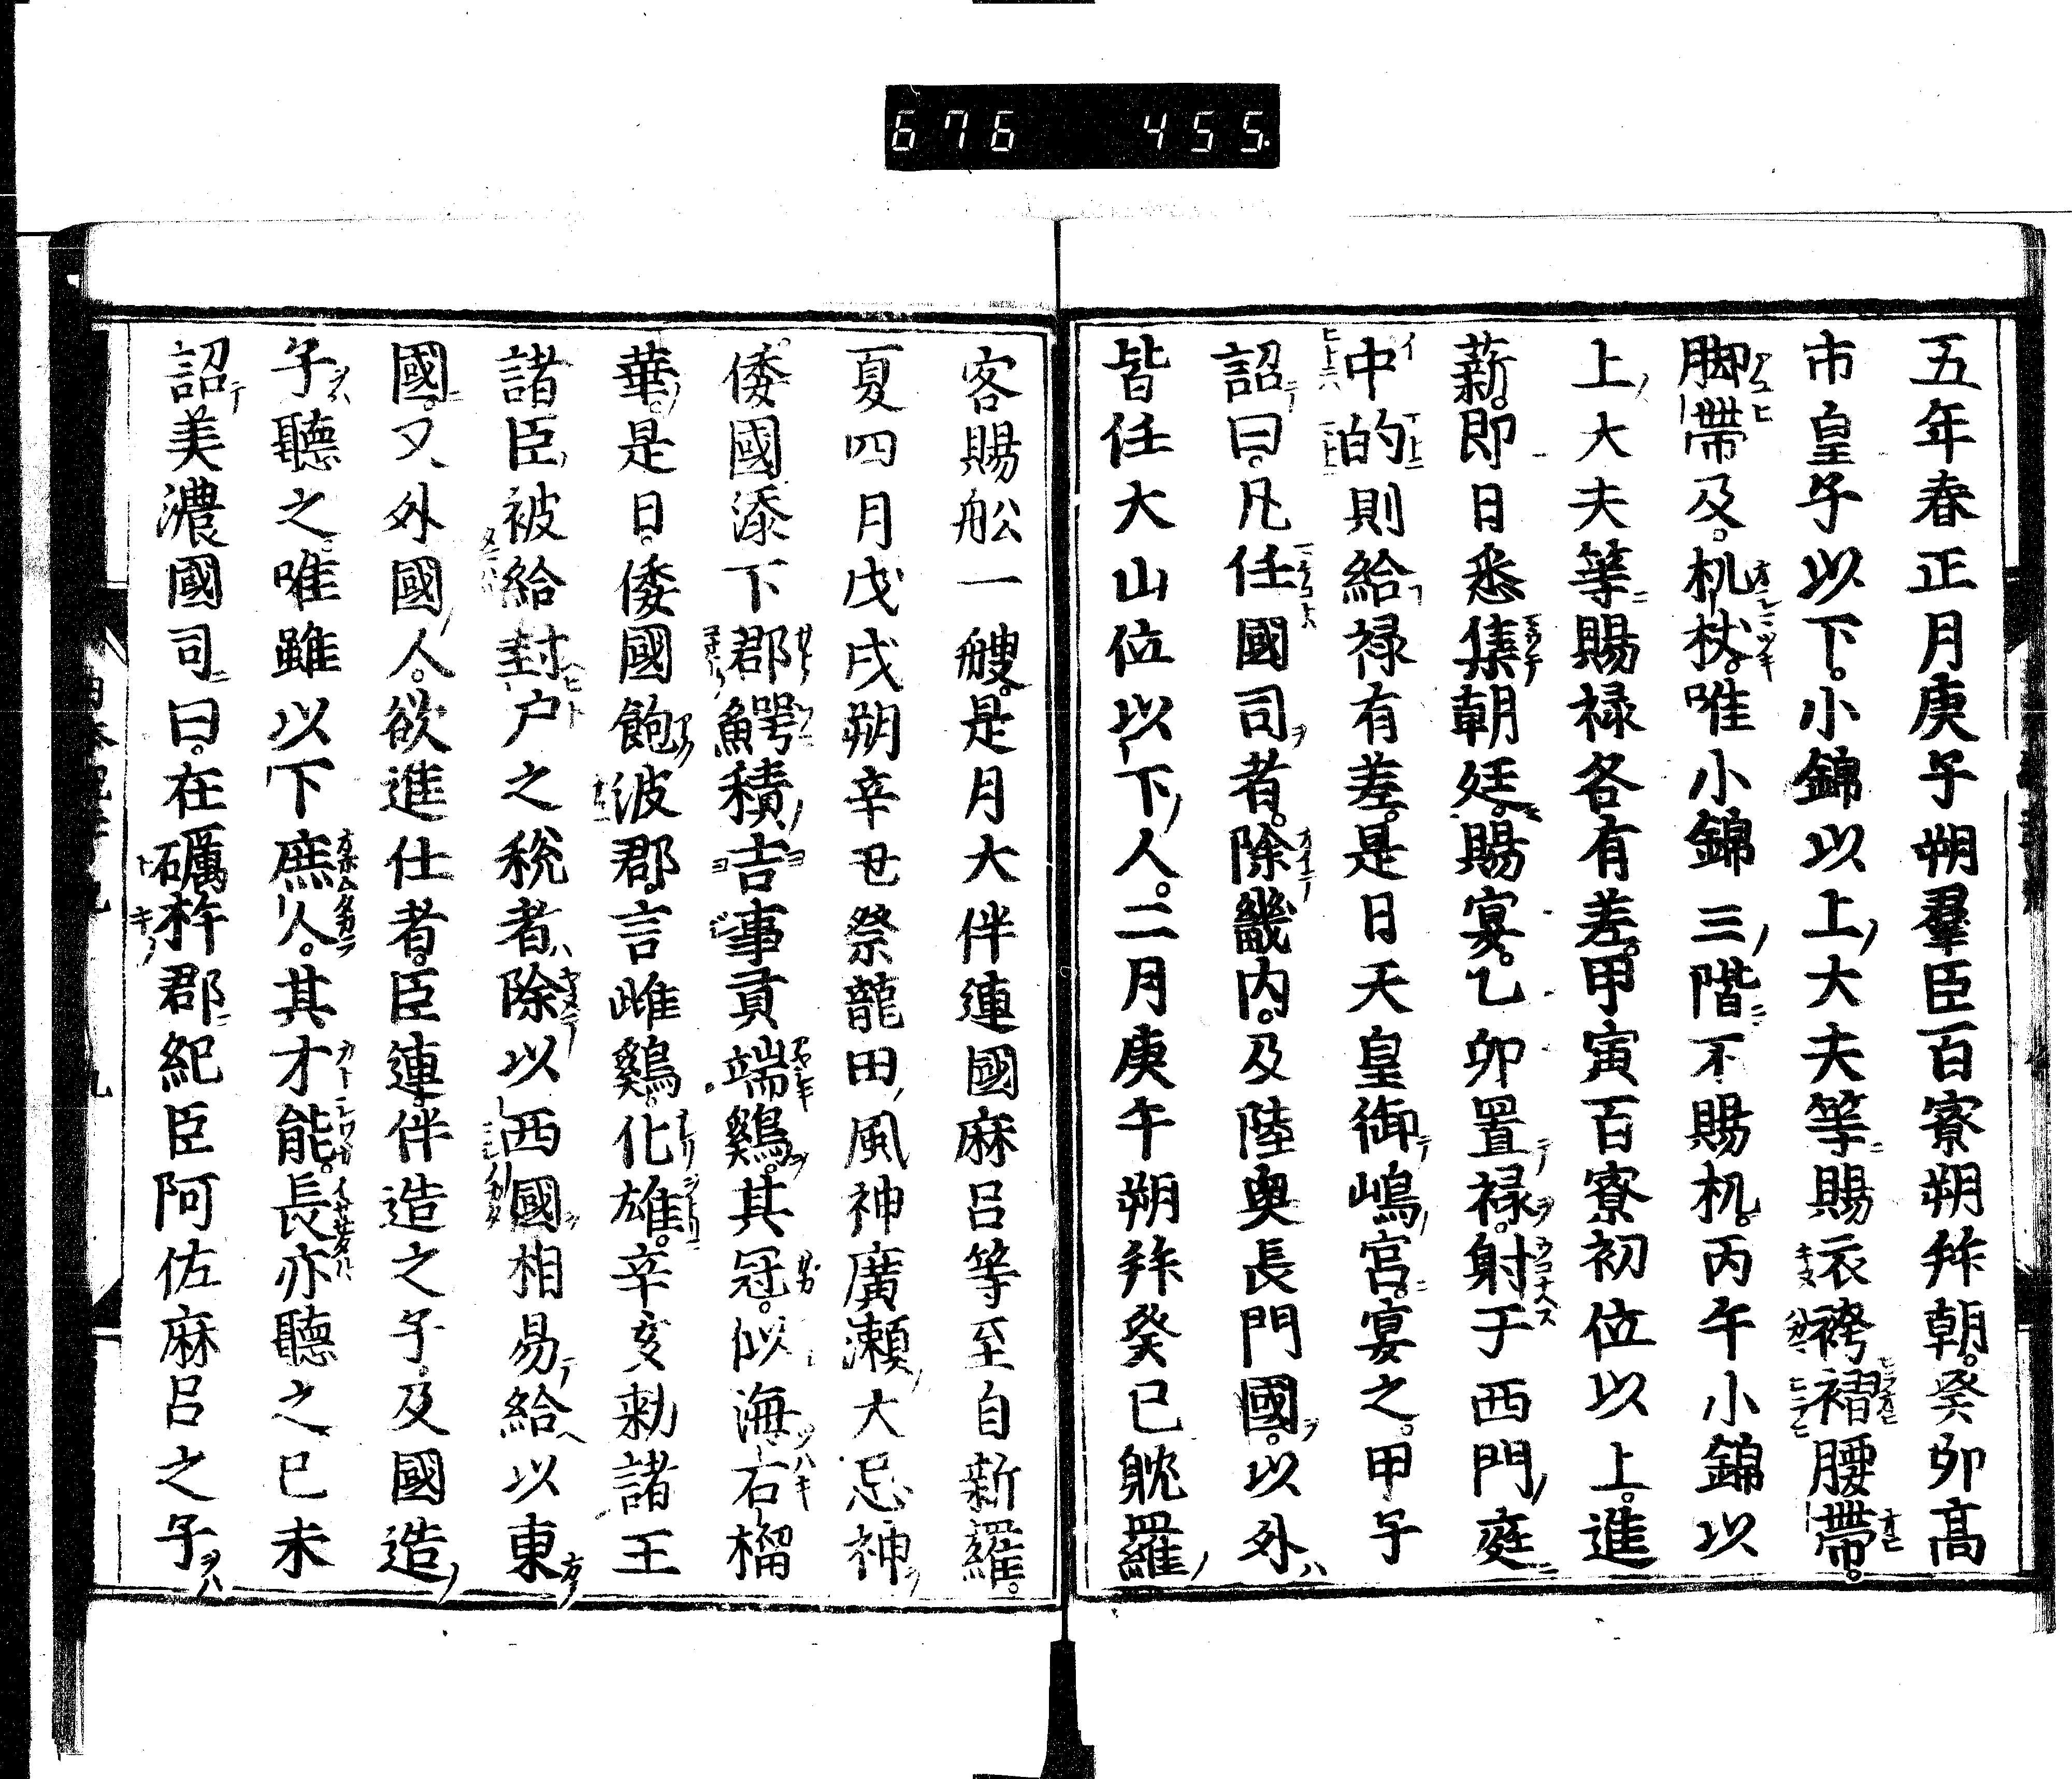 676 455
五年春正月庚子朔羣臣百寮朔拜朝。癸卯高
市皇子以下。小錦以上大夫等賜衣袴褶腰帶。
脚帶及。机杖。唯小錦三階不賜机。丙午小錦以
上大夫等賜禄各有差。甲寅百寮初位以上。進
薪。即日悉集朝廷。賜宴。乙卯置禄。射于西門庭
中的則給禄有差。是日天皇御嶋宮。宴之。甲子
詔曰。凡任國司者。除畿内。及陸奥長門國。以外
皆任大山位以下人。二月庚午朔拜癸巳耽羅
客賜舩一艘。是月大伴連國麻呂等至自新羅。
夏四月戊戌朔辛丑祭龍田風神廣瀬大忌神
倭國添下郡鰐積吉事貢端鷄。其冠。似海石榴
華。是日。倭國飽波郡。言雌鷄。化雄。辛亥勅諸王
諸臣被給封戸之税者除以西國相易給以東
國。又外國人。欲進仕者。臣連。伴造之子。及國造
子聽之。唯雖以下庶人。其才能。長亦聽之己未
詔美濃國司曰。在礪杵郡紀臣阿佐麻呂之子